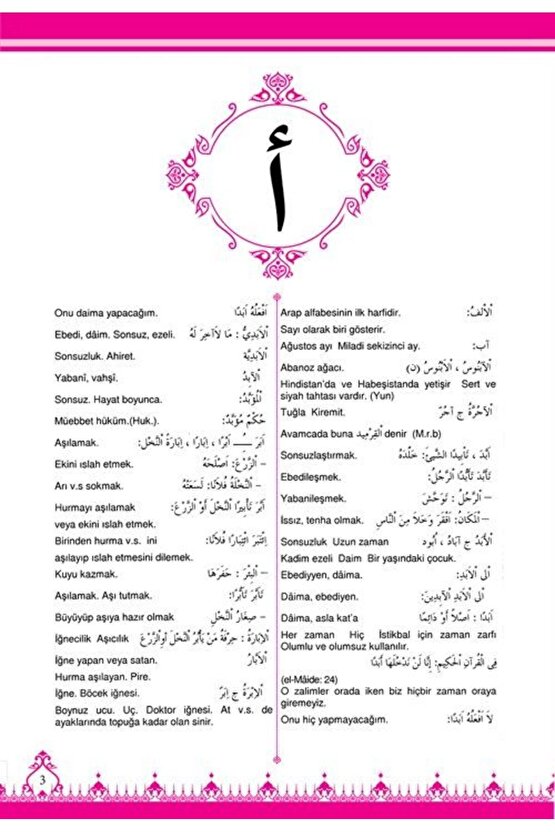 أ
اَلْاَلِفُ: Arap alfabesinin ilk harfidir.
Sayı olarak biri gösterir.
آب: Ağustos ayı Miladi sekizinci ay.
اَلْآبَنُوسُ ، اَلْاَبْنُوسُ (ن) Abanoz ağacı.
Hindistan'da ve Habeşistanda yetişir Sert ve
siyah tahtası vardır. (Yun)
اَلْآجُرَّةُ ج آجُرّ Tuğla Kiremit.
Avamcada buna اَلْقِرْمِيد denir (M.r.b)
أَبَّدَ ، تَأْبِيدًا الشَّيْئَ: خَلَّدَهُ Sonsuzlaştırmak.
تَأَبَّدَ تَأَبُّدًا الرَّجُلُ: Ebedileşmek.
– اَلرَّجُلُ : تَوَحَّشَ Yabanileşmek.
– اَلْمَكَانُ: اَقْفَرَ وَخَلَا مِنَ النَّاسِ Issız, tenha olmak.
اَلْأَبَدُ ج آبَادٌ ، أُبُود Sonsuzluk Uzun zaman
Kadim ezeli Daim Bir yaşındaki çocuk.
اَلَى الْاَبَدِ: Ebediyyen, dâima.
اَلَى الْاَبَدِ الْآبِدِينَ: Dâima, ebediyen.
اَبَدًا : اَصْلاً اَوْ دَائِمًا Dâima, asla kat'a
Her zaman Hiç İstikbal için zaman zarfı
Olumlu ve olumsuz kullanılır.
فِى الْقُرآنِ الْحَكِيمِ: إِنَّا لَنْ نَدْخُلَهَا أَبَدًا
(el-Mâide: 24)
O zalimler orada iken biz hiçbir zaman oraya
giremeyiz.
لاَ اَفْعَلُهُ اَبَدًا: Onu hiç yapmayacağım.
اَفْعَلُهُ اَبَدًا Onu daima yapacağım.
اَلْاَبَدِيُّ : مَا لاَآخِرَ لَهُ Ebedi, dâim. Sonsuz, ezeli.
اَلْاَبَدِيَّة Sonsuzluk. Ahiret.
اَلْآبِدُ Yabanî, vahşî.
اَلْمُؤَبَّدُ: Sonsuz. Hayat boyunca.
حُكْمٌ مُؤَبَّدٌ: Müebbet hüküm.(Huk.).
اَبَرَ ـــُـ اَبْرًا ، اِبَارًا ، اِبَارَةً النَّخْلَ: Aşılamak.
– اَلزَّرْعَ: اَصْلَحَهُ Ekini ıslah etmek.
– اَلنَّحْلَةُ فُلَانًا: لَسَعَتْهُ Arı v.s sokmak.
اَبَّرَ تَأْبِيرًا النَّخْلَ أَوْ الزَّرْعَ: Hurmayı aşılamak
veya ekini ıslah etmek.
اِئْتَبَرَ اِئْتِبَارًا فُلَانًا: Birinden hurma v.s. ini
aşılayıp ıslah etmesini dilemek.
– اَلْبِئْرَ : حَفَرَهَا Kuyu kazmak.
تَأَبَّرَ تَأَبُّرًا: Aşılamak. Aşı tutmak.
– صِغَارُ النَّخْلِ Büyüyüp aşıya hazır olmak
اَلْاِبَارَةُ : حِرْفَةُ مَنْ يَأْبُرُ النَّخْلَ اَوِالزَّرْعَ İğnecilik Aşıcılık
اَلْاَبَّارُ İğne yapan veya satan.
Hurma aşılayan. Pire.
اَلْاِبْرَةُ ج اِبَر İğne. Böcek iğnesi.
Boynuz ucu. Uç. Doktor iğnesi. At v.s. de
ayaklarında topuğa kadar olan sinir.
3